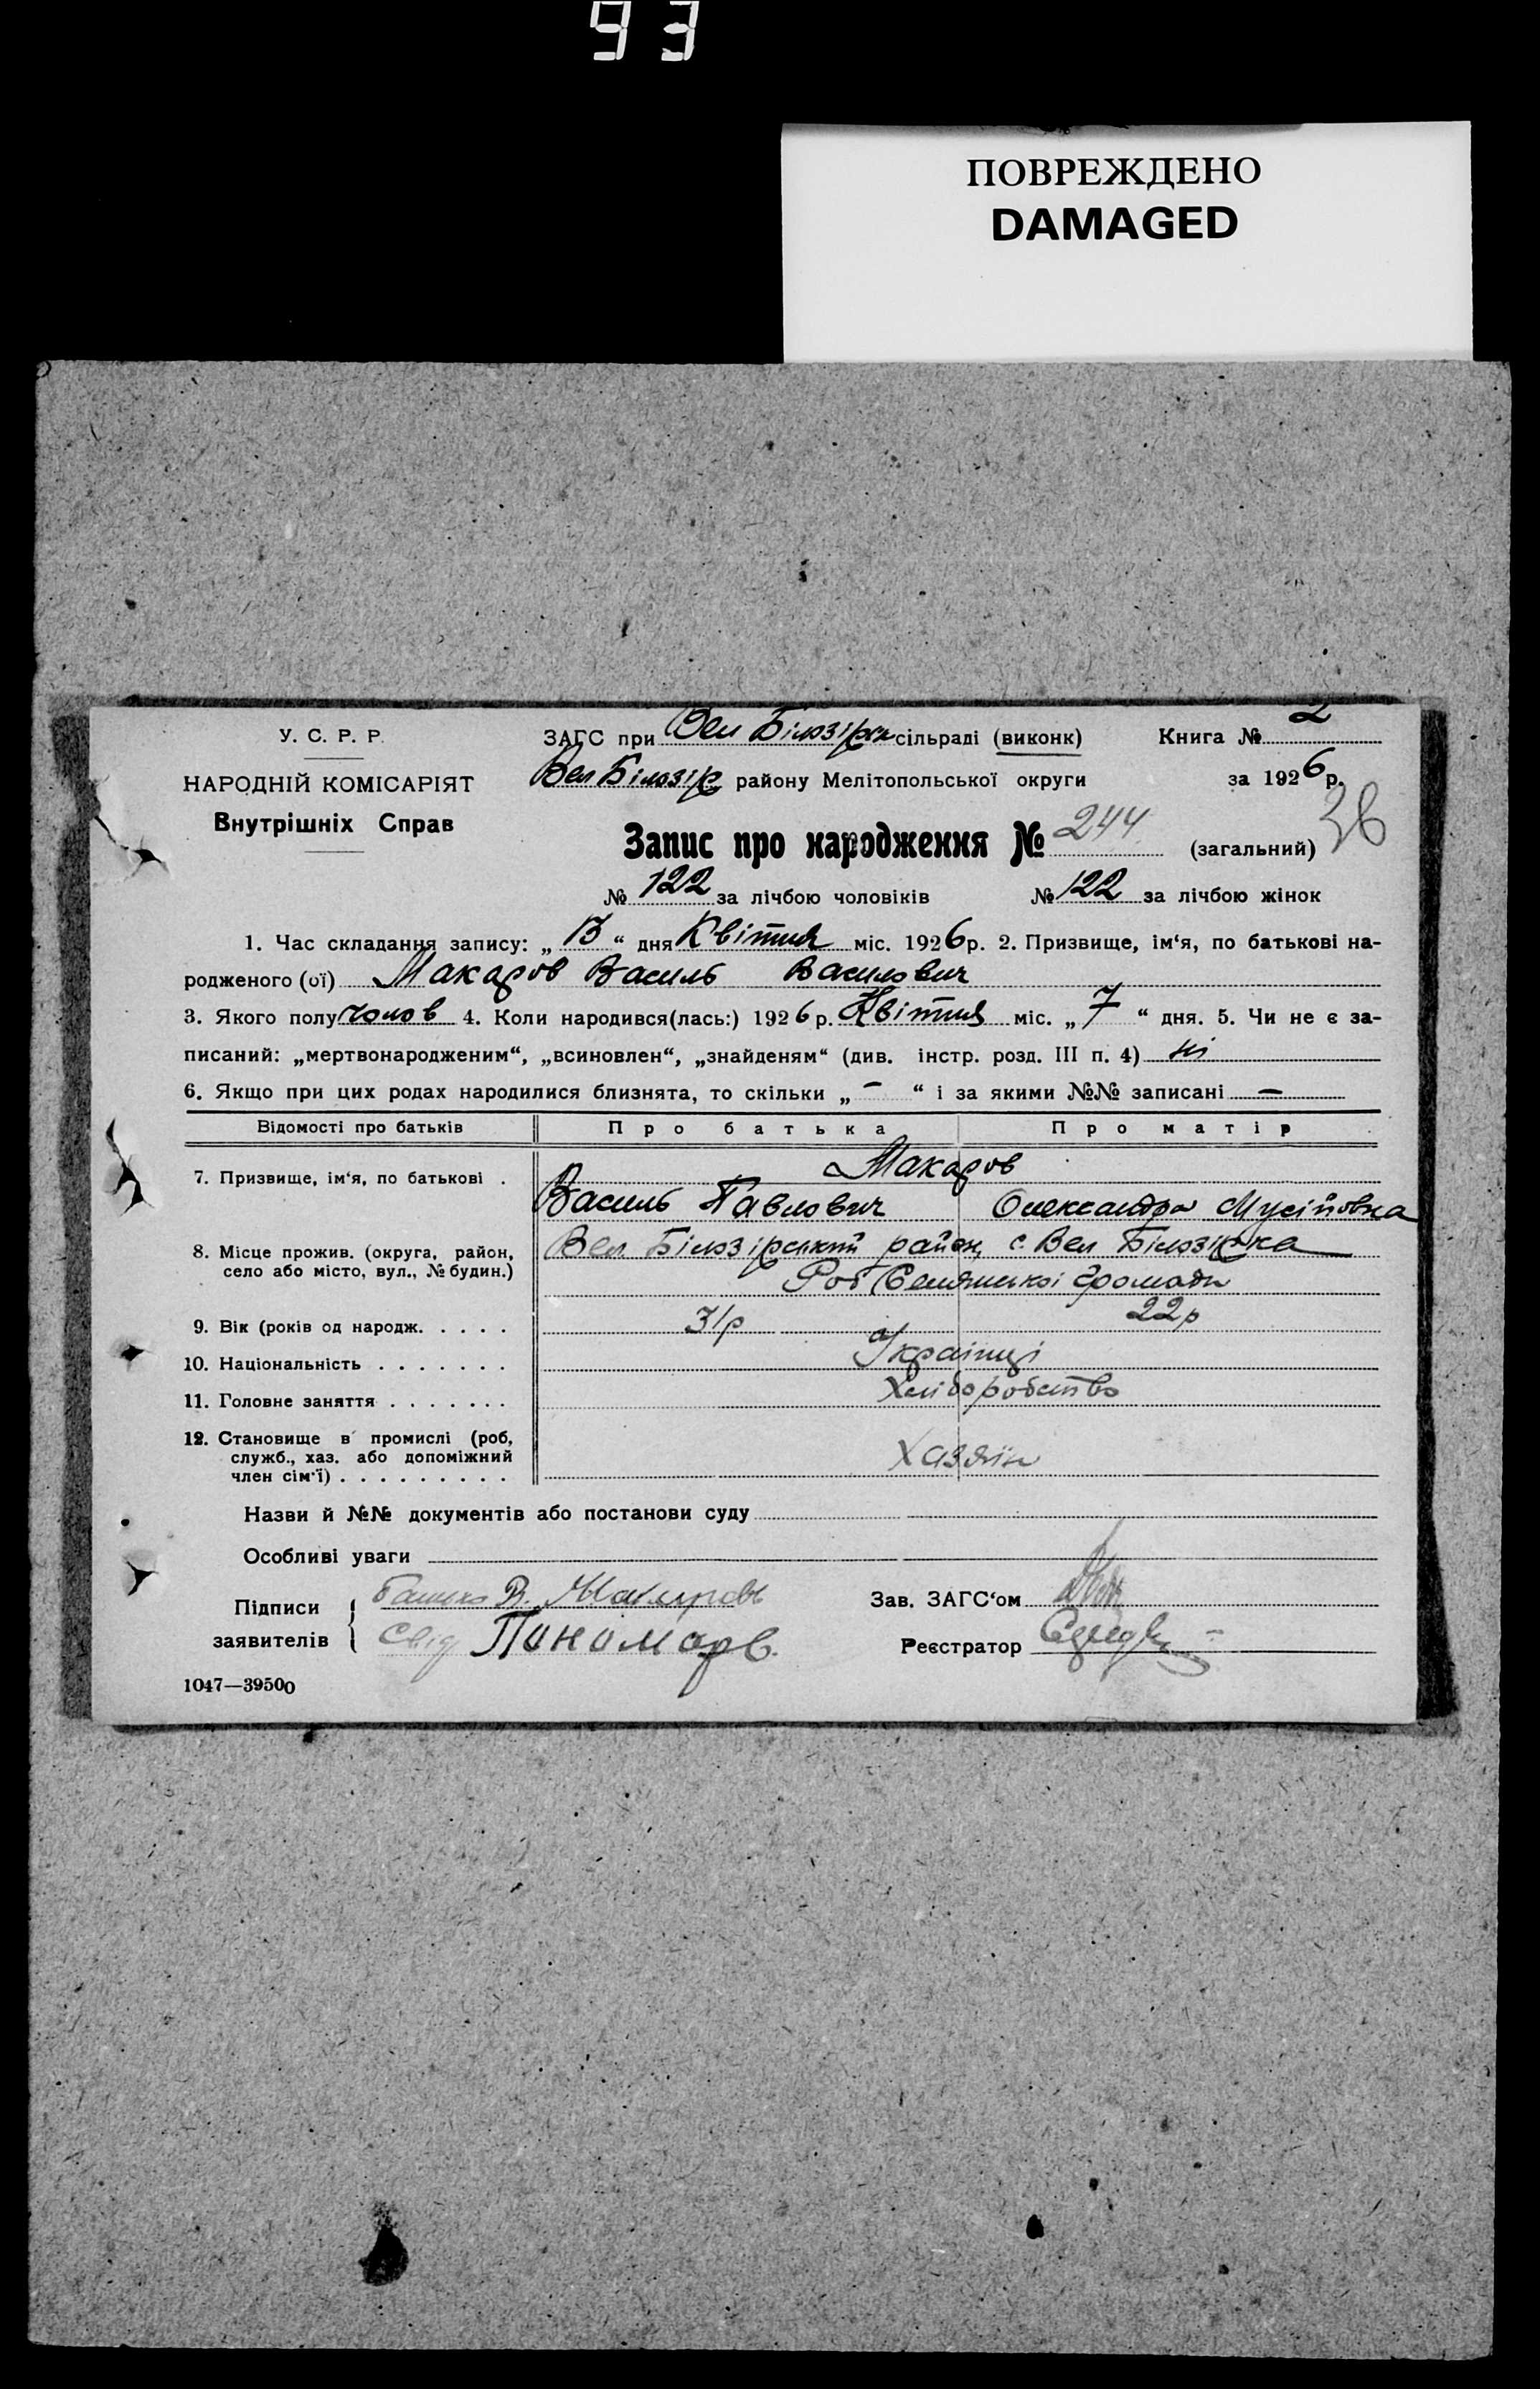 93
ПОВРЕЖДЕНО
DAMAGED
У. С. Р. Р.
НАРОДНІЙ КОМІСАРІЯТ
Внутрішніх Справ
ЗАГС при Вел Білозірск сільраді (виконк) Книга № 2
Вел Білозір району Мелітопольської округи за 1926 р.
36
Запис про народження № 244 (загальний)
№ 122 за лічбою чоловіків № 122 за лічбою жінок
1. Час складання запису: „ 13 “ дня Квітня міс. 1926 р. 2. Призвище, ім‘я, по батькові на-
родженого (ої) Макаров Василь Василович
3. Якого полу чолов 4. Коли народився(лась:) 1926 р. Квітня міс. „ 7 “ дня. 5. Чи не є за-
писаний: „мертвонародженим“, „всиновлен“, „знайденям“ (див. інстр. розд. III п. 4) ні
6. Якщо при цих родах народилися близнята, то скільки „ — “ і за якими №№ записані —
Відомості про батьків Про батька Про матір
7. Призвище, ім‘я, по батькові . Макаров
Василь Павлович Олександра Мусіївовна
8. Місце прожив. (округа, район, село або місто, вул., № будин.) Вел Білозірський район с. Вел Білозірка
Селянської громади
9. Вік (років од народж. . . . . 31р 22р
10. Національність . . . . . . . Українці
11. Головне заняття . . . . . . . Хліборобство
12. Становище в промислі (роб, служб., хаз. або допоміжний член сім‘ї) . . . . . . . . . Хазяїн
Назви й №№ документів або постанови суду
Особливі уваги
Підписи заявителів { Батько В. Макаров
Свід Пономарв
Зав. ЗАГС‘ом
Реєстратор
1047—39500